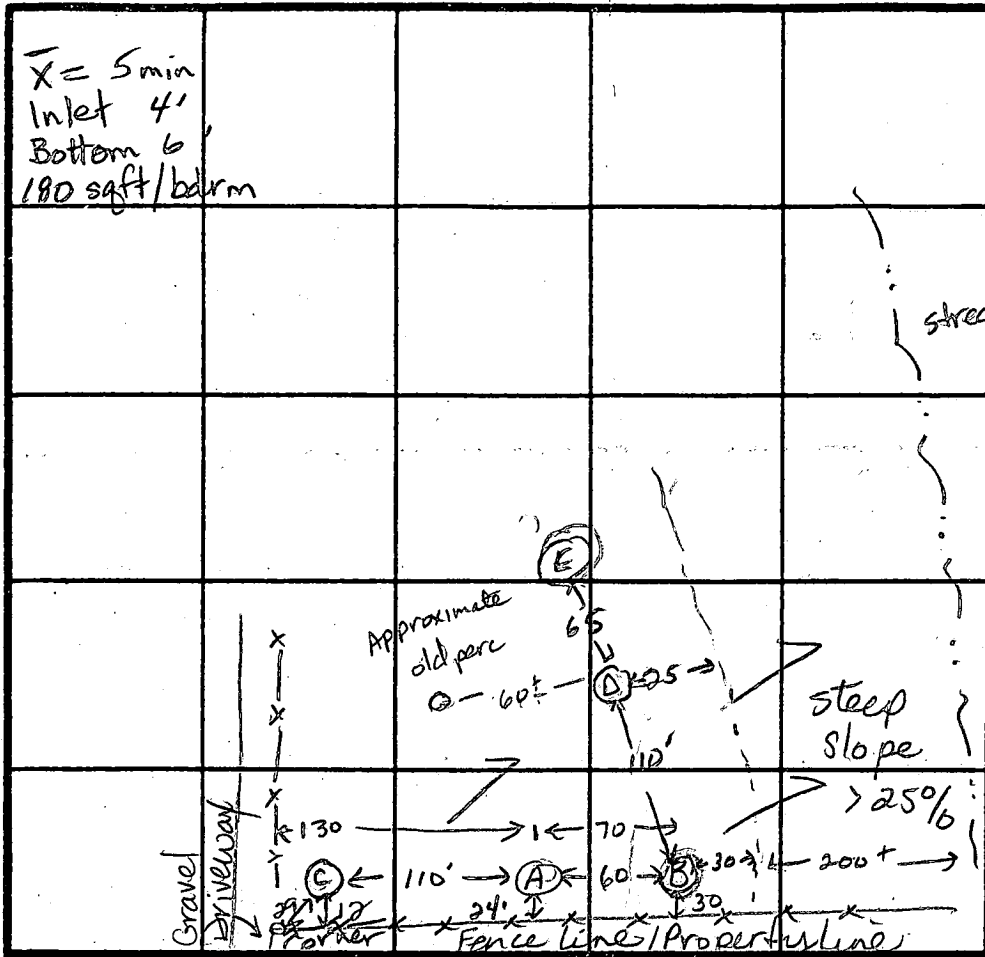 x̄ = 5 min
Inlet 4'
Bottom 6'
180 sqft/bdrm
E
Approximate
old perc
65
60±
D
25
steep
slope
>25%
110'
130
70
C
110'
A
60
B
30
200+
12
24'
30
Gravel
Driveway
Corner
Fence line/Property line